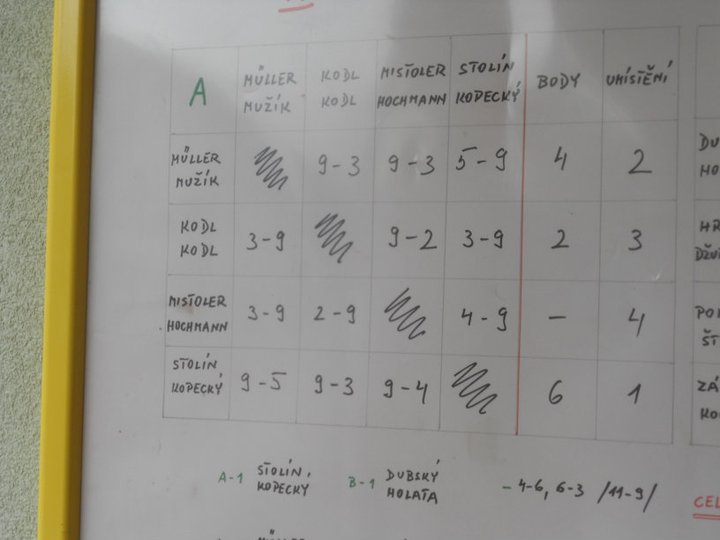 A MÜLLER MUŽÍK KODL KODL MISTOLER HOCHMANN STOLÍN KOPECKÝ BODY UMÍSTĚNÍ
MÜLLER MUŽÍK 9-3 9-3 5-9 4 2
KODL KODL 3-9 9-2 3-9 2 3
MISTOLER HOCHMANN 3-9 2-9 4-9 - 4
STOLÍN KOPECKÝ 9-5 9-3 9-4 6 1
A-1 STOLÍN, KOPECKÝ B-1 DUBSKÝ HOLATA - 4-6, 6-3 /11-9/